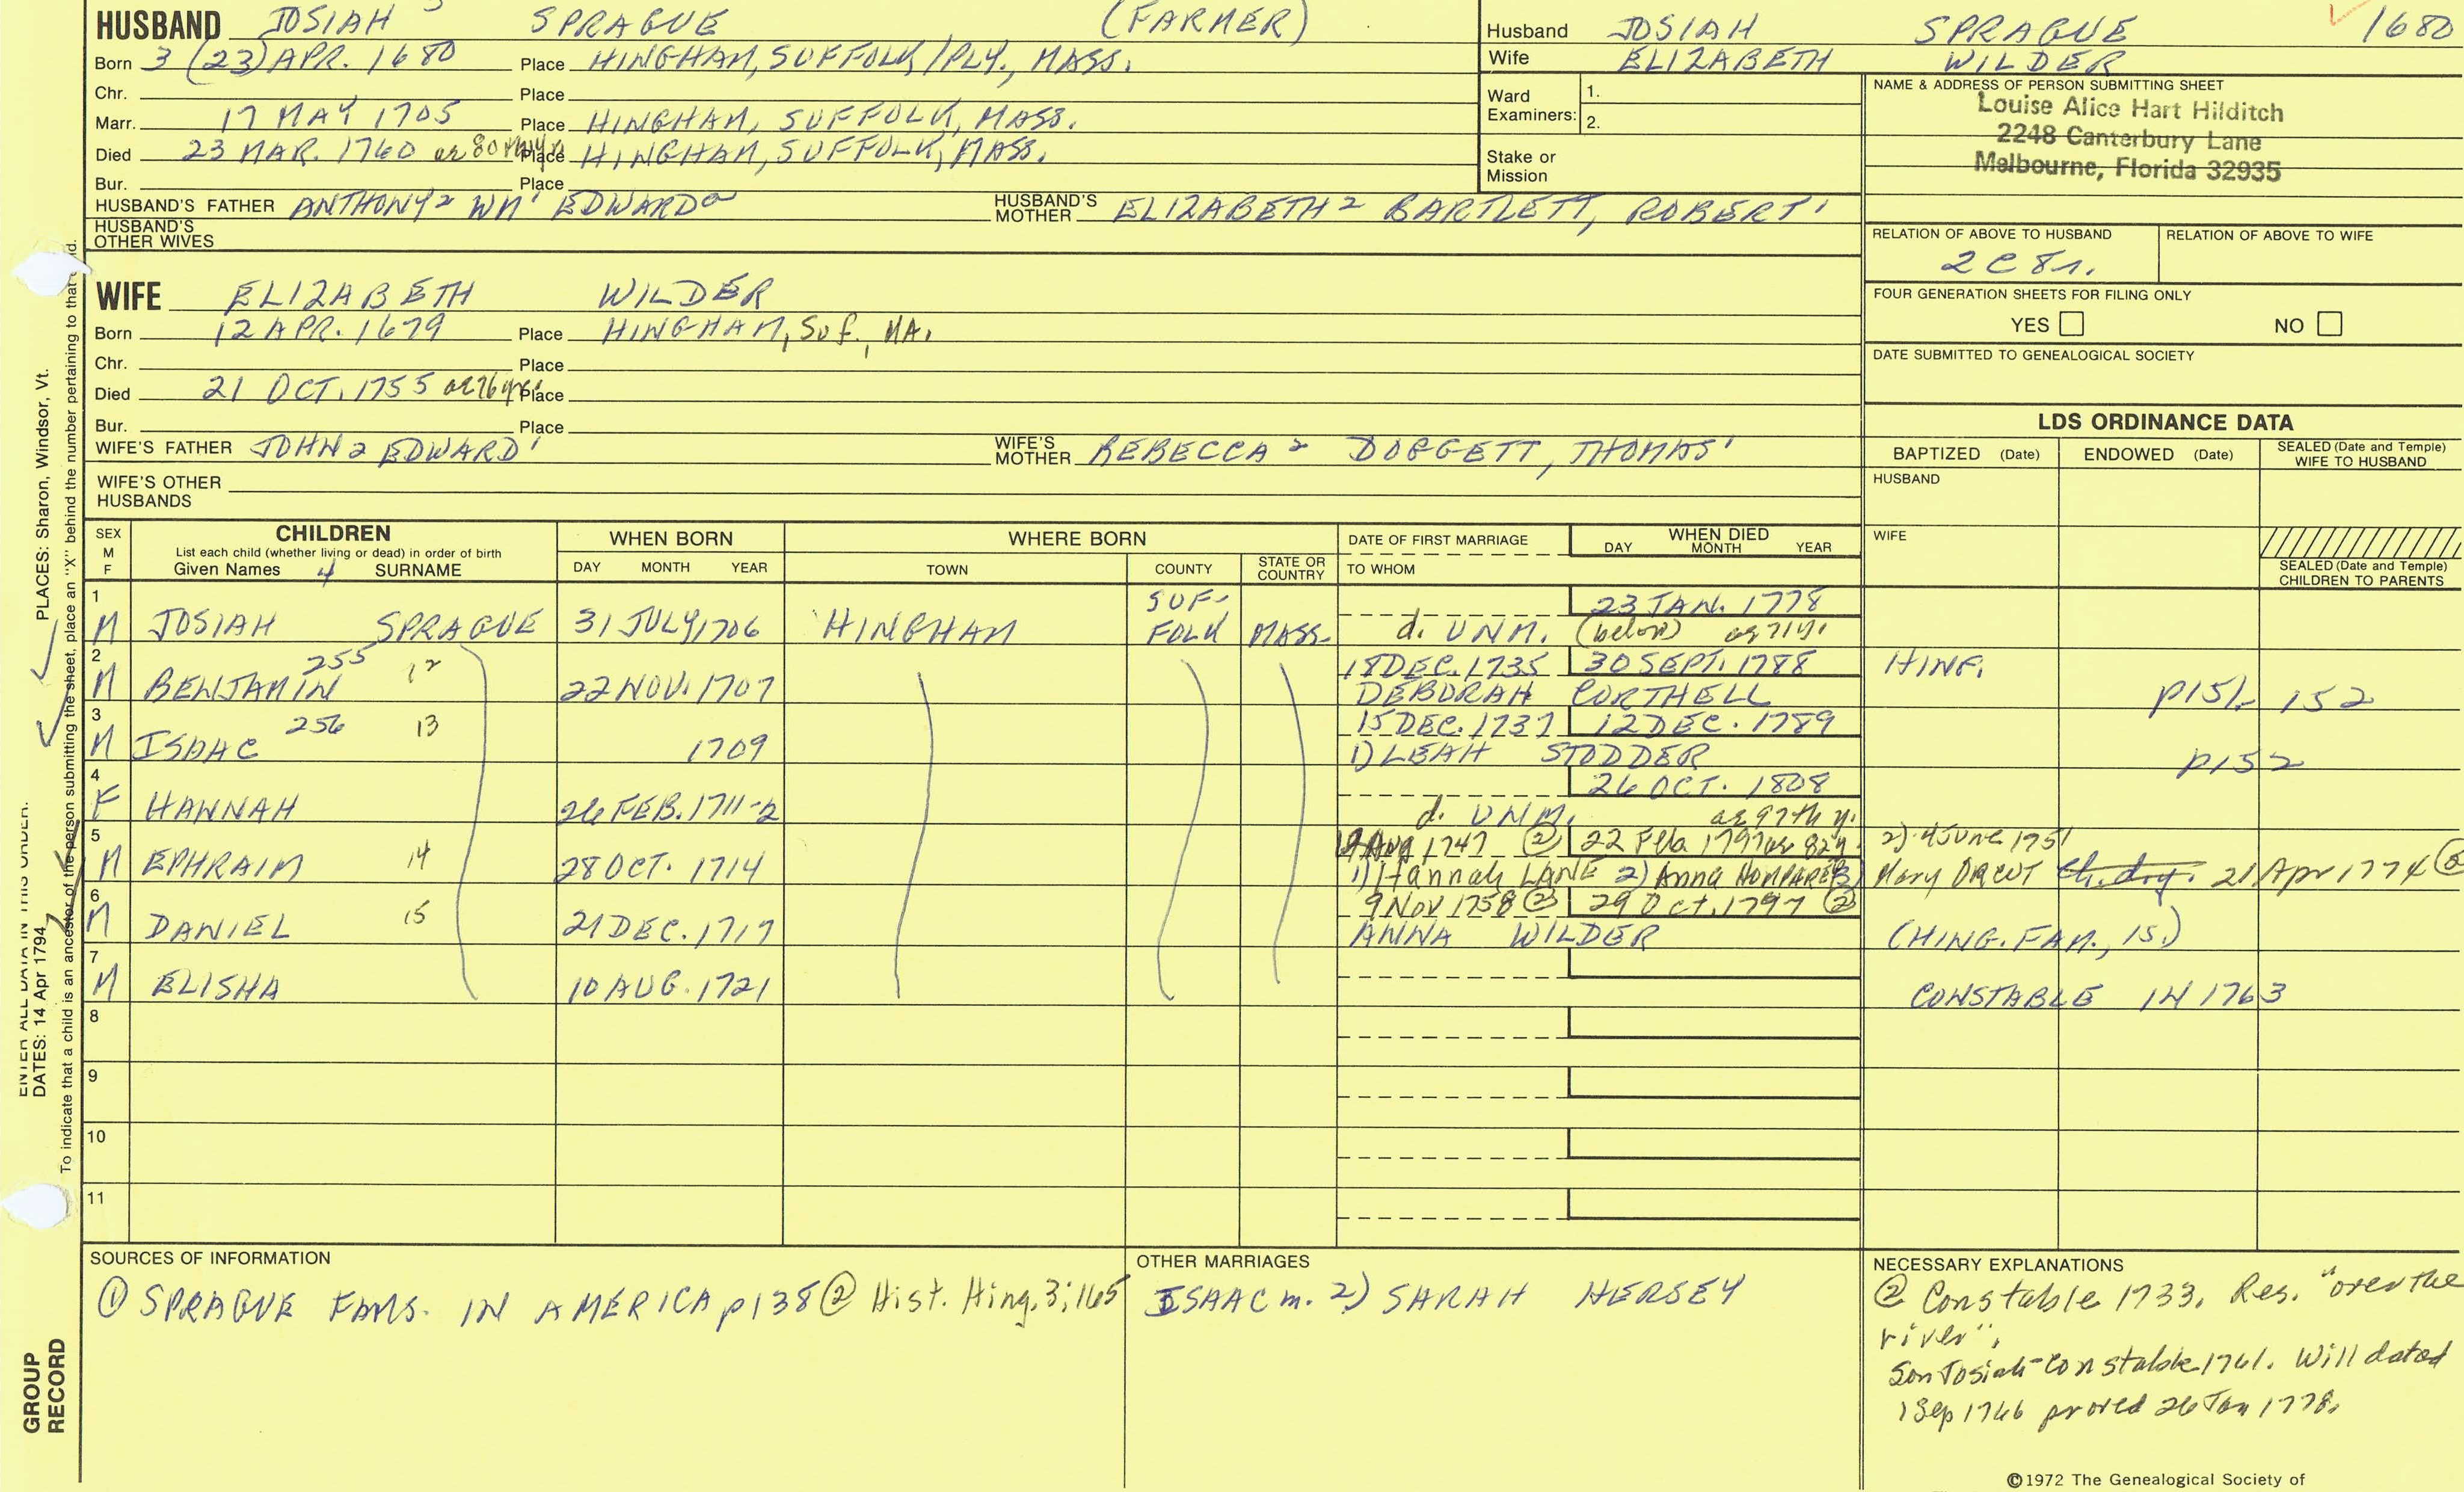 HUSBAND JOSIAH 3 SPRAGUE (FARMER)
Born 3 (23) APR. 1680 Place HINGHAM, SUFFOLK/PLY., MASS.
Chr. Place
Marr. 17 MAY 1705 Place HINGHAM, SUFFOLK, MASS.
Died 23 MAR. 1760 ae 80 Place HINGHAM, SUFFOLK, MASS.
Bur. Place
HUSBAND'S FATHER ANTHONY2 WM1 EDWARDa HUSBAND'S MOTHER ELIZABETH2 BARTLETT, ROBERT1
HUSBAND'S OTHER WIVES
Husband JOSIAH SPRAGUE 1680
Wife ELIZABETH WILDER
Ward Examiners: 1.
2.
Stake or Mission
NAME & ADDRESS OF PERSON SUBMITTING SHEET
Louise Alice Hart Hilditch
2248 Canterbury Lane
Melbourne, Florida 32935
RELATION OF ABOVE TO HUSBAND RELATION OF ABOVE TO WIFE
2C8r.
FOUR GENERATION SHEETS FOR FILING ONLY
YES NO
DATE SUBMITTED TO GENEALOGICAL SOCIETY
WIFE ELIZABETH WILDER
Born 12 APR. 1679 Place HINGHAM, Suf., MA.
Chr. Place
Died 21 OCT. 1755 ae 76 yrs Place
Bur. Place
WIFE'S FATHER JOHN2 EDWARD1 WIFE'S MOTHER REBECCA2 DOGGETT, THOMAS1
WIFE'S OTHER HUSBANDS
LDS ORDINANCE DATA
BAPTIZED (Date) ENDOWED (Date) SEALED (Date and Temple) WIFE TO HUSBAND
HUSBAND
WIFE
SEALED (Date and Temple) CHILDREN TO PARENTS
SEX M F CHILDREN List each child (whether living or dead) in order of birth Given Names 4 SURNAME
WHEN BORN DAY MONTH YEAR
WHERE BORN TOWN COUNTY STATE OR COUNTRY
DATE OF FIRST MARRIAGE TO WHOM
WHEN DIED DAY MONTH YEAR
1 M JOSIAH SPRAGUE 31 JULY, 1706 HINGHAM SUF-FOLK MASS. d. UNM. 23 JAN. 1778 (below) ae 71 y.
2 M BENJAMIN 255 12 22 NOV. 1707 18 DEC. 1735 30 SEPT. 1788 DEBORAH CORTHELL HINF. p151- 152
3 M ISAAC 256 13 1709 15 DEC. 1737 12 DEC. 1789 1) LEAH STODDER p152
4 F HANNAH 26 FEB. 1711-2 d. UNM. 26 OCT. 1808 ae 97th y.
5 M EPHRAIM 14 28 OCT. 1714 Aug 1747 ② 22 Feb 1797 ae 82y. 1) Hannah LANE 2) Anna 2) 4 JUNE 1751 Mary 21 Apr 1774
6 M DANIEL 15 21 DEC. 1717 9 Nov 1758 ② 29 Oct. 1797 ② ANNA WILDER (HING. FAM., 15.)
7 M ELISHA 10 AUG. 1721 CONSTABLE IN 1763
8
9
10
11
SOURCES OF INFORMATION
① SPRAGUE FAMS. IN AMERICA p138 ② Hist. Hing. 3:165
OTHER MARRIAGES
ISAAC m. 2) SARAH HERSEY
NECESSARY EXPLANATIONS
② Constable 1733. Res. "over the
river".
Son Josiah-Constable 1761. Will dated
1 Sep 1766 proved 26 Jan 1778.
©1972 The Genealogical Society of
PLACES: Sharon, Windsor, Vt.
ENTER ALL DATA IN THIS ORDER:
DATES: 14 Apr 1794
To indicate that a child is an ancestor of the person submitting the sheet, place an "X" behind the number pertaining to that
GROUP
RECORD